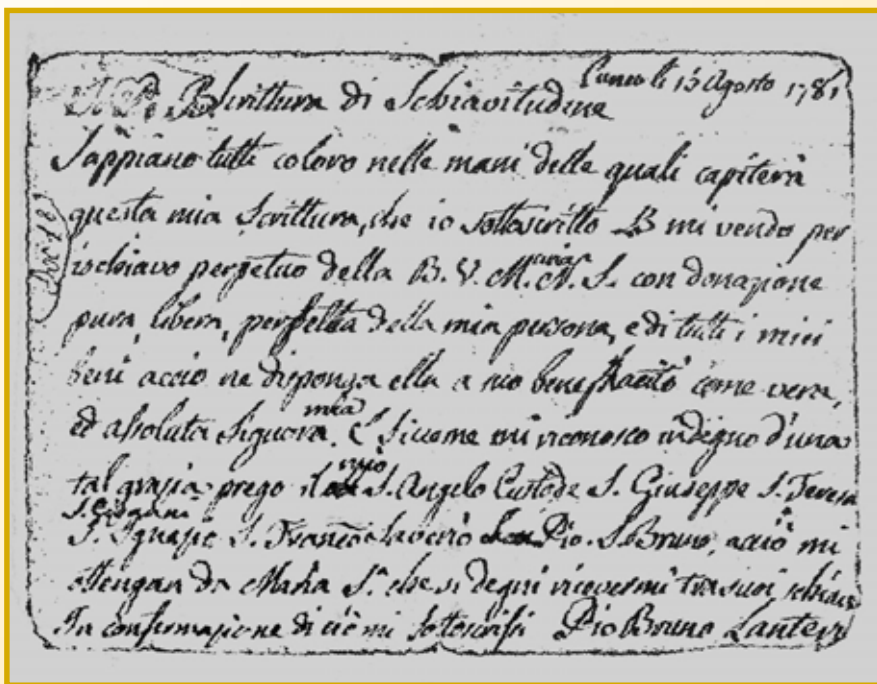 Cuneo li 15 Agosto 1781
Scrittura di Schiavitudine
Sappiano tutti coloro nelle mani delle quali capiterà
questa mia Scrittura, che io sottoscritto B mi vendo per
ischiavo perpetuo della B. V. M.aria N. S. con donazione
pura, libera, perfetta della mia persona, e di tutti i miei
beni acciò ne disponga ella a suo beneplacito come vera,
ed assoluta Signora mia. E Siccome mi riconosco indegno d'una
tal grazia prego il mio S. Angelo Custode S. Giuseppe S. Teresa
S. Giovanni
S. Ignazio S. Franco Xaverio S. Pio. S. Bruno, acciò mi
ottengan da Maria S.a che si degni ricevermi tra suoi schiavi
In confirmazione di ciò mi sottoscrissi Pio Bruno Lanteri